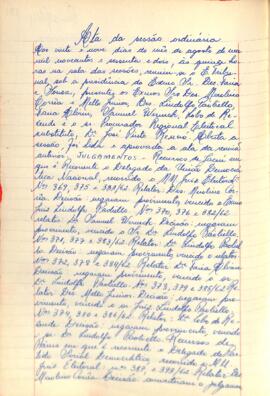 Ata da sessão ordinária
Aos vinte e nove dias do mês de agosto de mil
novecentos e sessenta e dois, às quinze ho-
ras na sala das sessões, reuniu-se o E. Tribu-
nal, sob a presidência do Exmo. Sr. Des. Faria
e Sousa, presentes os Exmos. Srs. Des. Marcelino
e Mello Junior, Drs. Lindolfo Paoliello,
Samuel Werneck, Lobo de Re-
zende e o sr. Procurador Regional Eleitoral
substituto, Dr. José Pinto Aberta a
sessão, foi lida e aprovada a ata da reunião
anterior. JULGAMENTOS - Recursos de
que é Recorrente o Delegado da União Democrá-
tica Nacional, recorrido o MM. Juiz Eleitoral:
Nº 369, 375 e 382/62. Relator: Des. Marcelino
Decisão: negaram provimento, vencido o Exmo.
Lindolfo Paoliello. Nºs 370, 376 e 382/62
Relator: Dr. Samuel Werneck. Decisão: negaram
provimento, vencido o Sr. Dr. Lindolfo Paoliello.
Nº 371, 377 e 383/62. Relator: Dr. Lindolfo Paoliel-
lo. Decisão: negaram provimento, vencido o relator.
Nº 372, 378 e 384/62. Relator: Dr.
Decisão: negaram provimento, vencido o sr.
Dr. Lindolfo Paoliello. Nº 373, 379 e 385/62. Re-
lator: Des. Mello Junior. Decisão: negaram pro-
vimento, vencido o sr. Lindolfo Paoliello.
Nº 374, 380 e 386/62. Relator: Dr. Lobo de Re-
zende. Decisão: negaram provimento, vencido
o sr. Dr. Lindolfo Paoliello. Recursos de
em que é recorrente o Delegado do Par-
tido Social Democrático, recorrido o MM.
Juiz Eleitoral: nº 387, 393/62. Relator: Des.
Marcelino Decisão: converteram o julgamen-